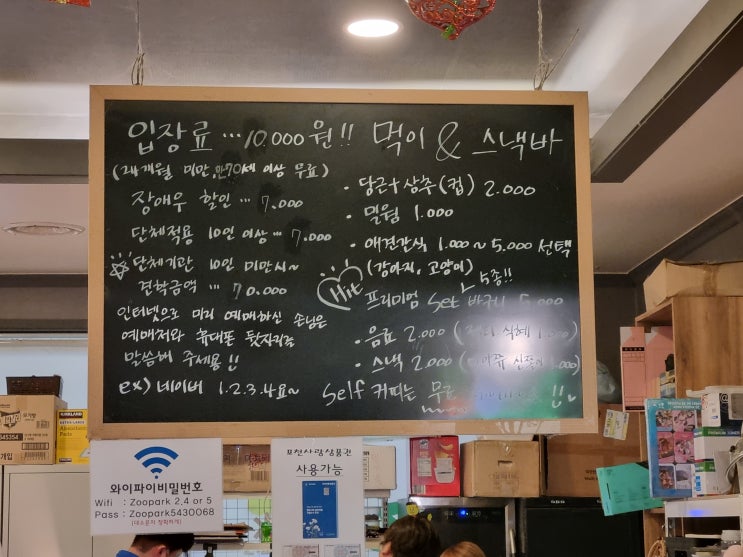 입장료 ... 10.000원!!
(24개월 미만, 만70세 이상 무료)
장애우 할인 ... 7.000
단체적용 10인 이상 ... 7.000
단체기관 10인 미만시~
견학금액 ... 70.000
인터넷으로 미리 예매하신 손님은
예매처와 휴대폰 뒷자리를
말씀해 주세용!!
ex) 네이버 1.2.3.4요~
먹이 & 스낵바
· 당근+상추(컵) 2.000
· 밀웜 1.000
· 애견간식 1.000~5.000 선택
(강아지, 고양이)
Hit
5종!!
프리미엄 Set 바구니 5.000
· 음료 2.000 ( 식혜 1.000)
· 스낵 2.000 (
Self 커피는 무료
와이파이비밀번호
Wifi : Zoopark 2,4 or 5
Pass : Zoopark5430068
(대소문자 정확하게)
포천사랑상품권
사용가능
KIRKLAND